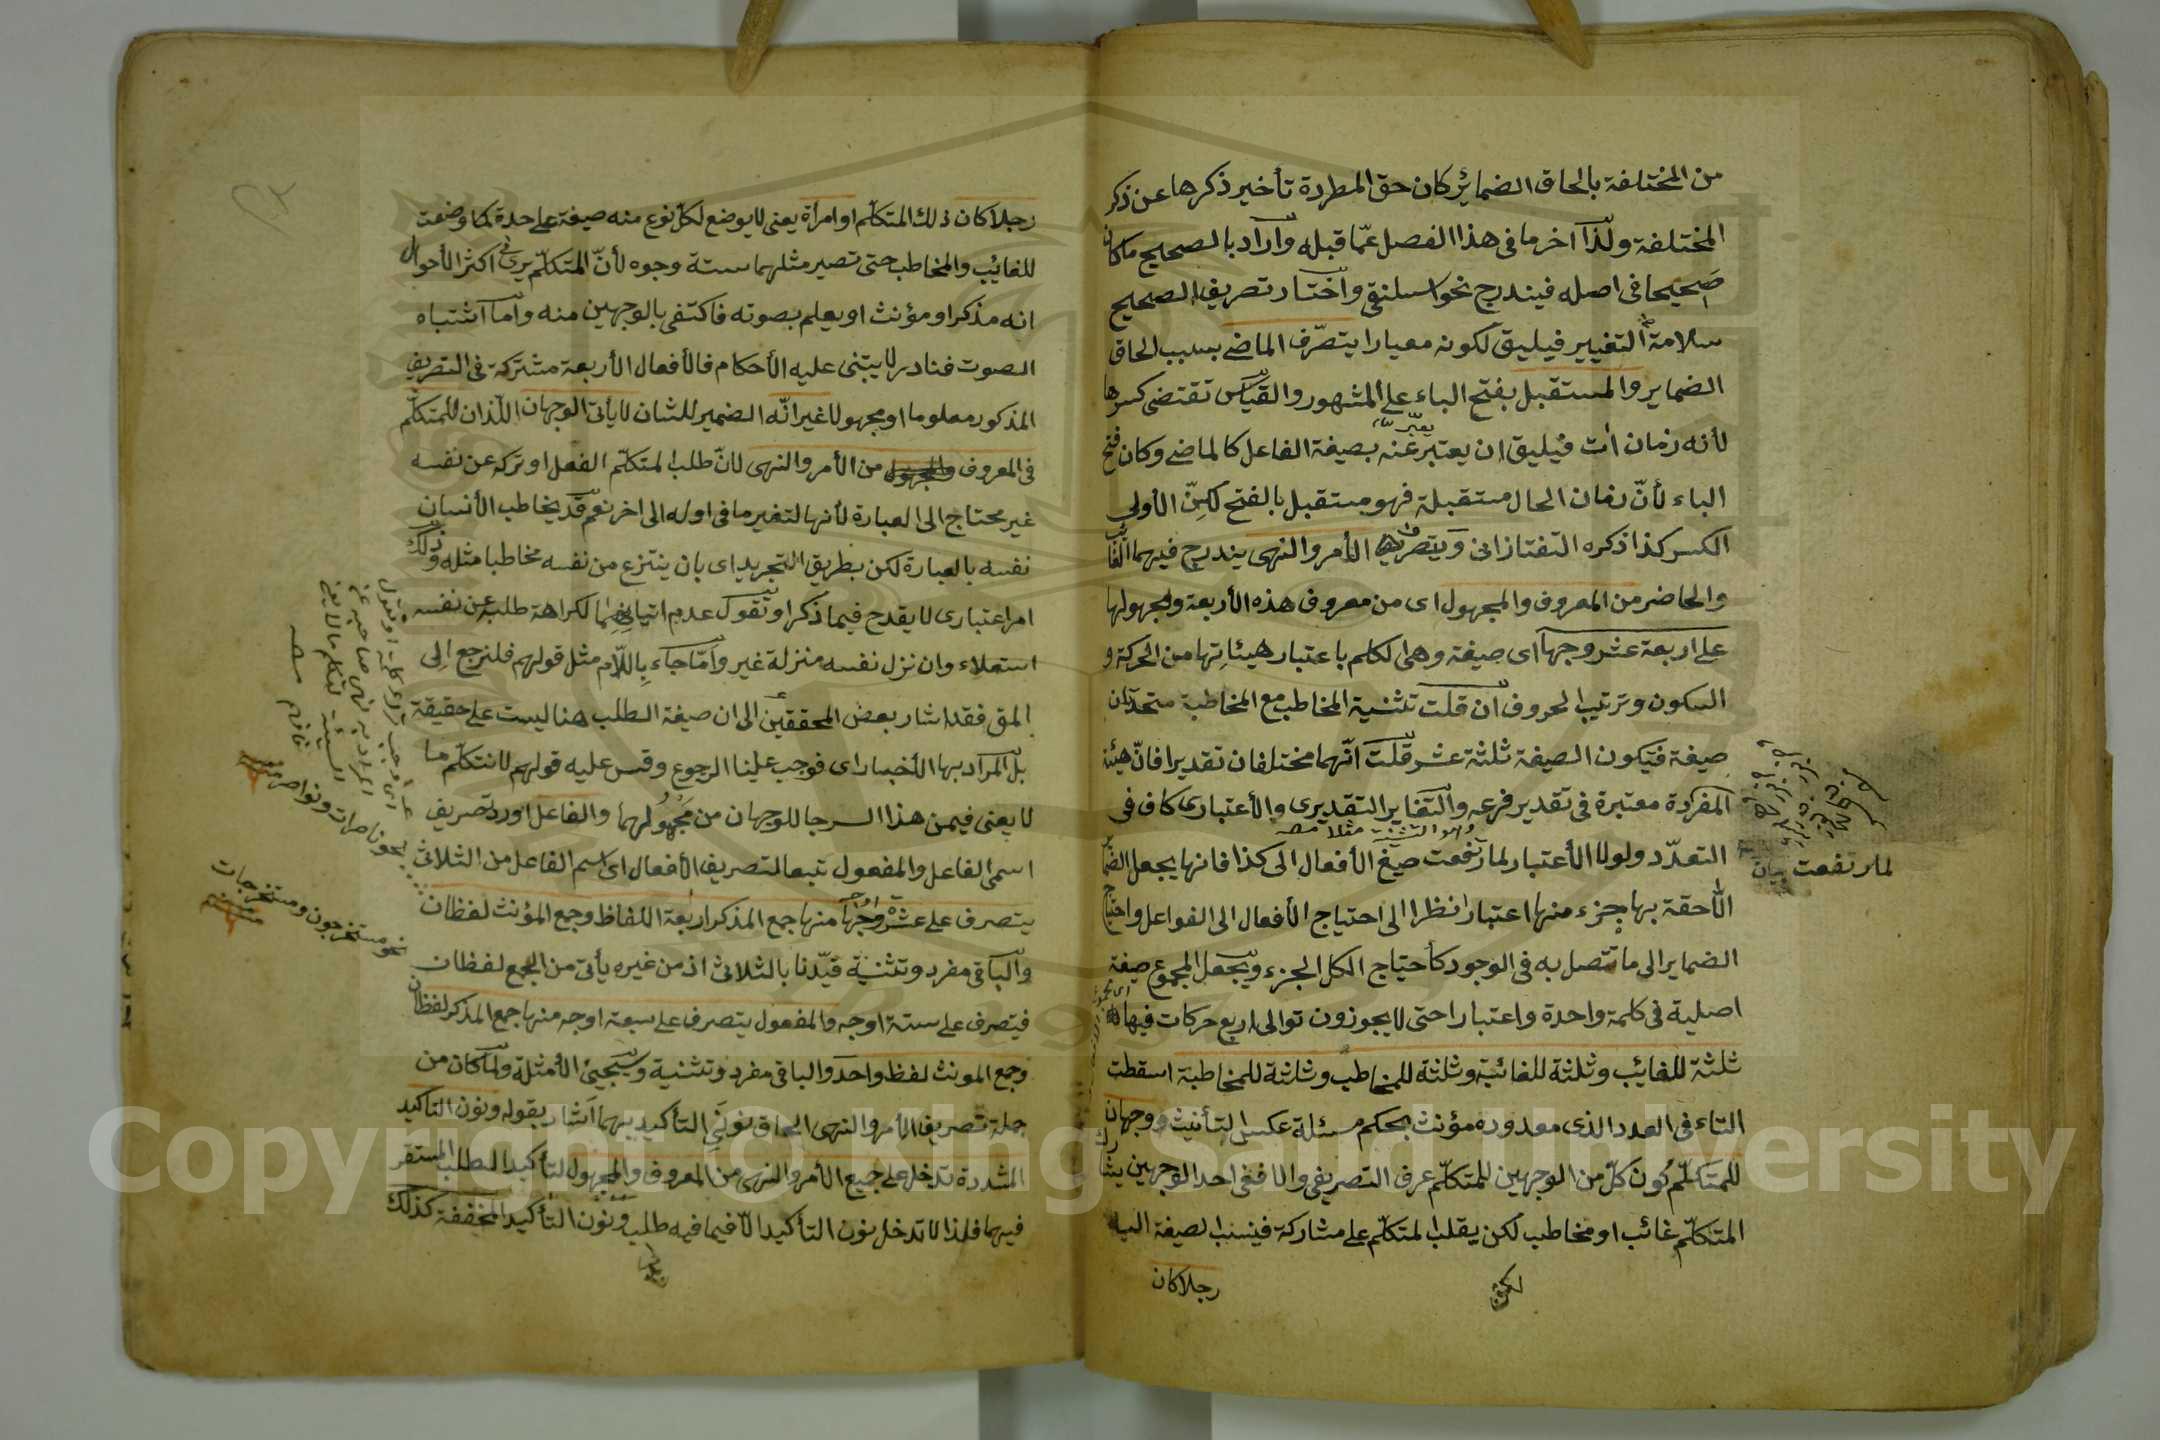 من المختلفة بالحاق الضمائر كان حق المطردة تأخير ذكرها عن ذكر
المختلفة ولذا آخر ما فى هذا الفصل عمّا قبله وأراد بالصحيح ما كان
صحيحا فى اصله فيندرج نحو اسلنقى واختار تصريف الصحيح
سلامة التغيير فيليق لكونه معيارا يتصرّف الماضى بسبب الحاق
الضماير والمستقبل بفتح الباء على المشهور والقياس تقتضى كسرها
لأنه زمان اٰت فيليق ان يعتبر عنه بصيغة الفاعل كالماضى وكان فتح
الباء لأنّ زمان الحال مستقبلة فهو مستقبل بالفتح لكنّ الأولى
الكسر كذا ذكره التفتازانى ويتصرف الأمر والنهى يندرج فيهما الغائب
والحاضر من المعروف والمجهول اى من معروف هذه الأربعة ومجهولها
على اربعة عشر وجها اى صيغة وهى الكلم باعتبار هيئاتها من الحركة و
السكون وترتيب الحروف ان قلت تثنية المخاطب مع المخاطبة متحدتان
صيغة فتكون الصيغة ثلثة عشر قلت انّهما مختلفان تقديرا فانّ هيئة
المفردة معتبرة فى تقدير فرعه والتغاير التقديرى والأعتبارى كاف فى
التعدّد ولولا الأعتبار لما رتفعت صيغ الأفعال الى كذا فانها يجعل الضمائر
اللّاحقة بها جزء منها اعتبارا نظرا الى احتياج الأفعال الى الفواعل واحتياج
الضماير الى ما تتصل به فى الوجود كأحتياج الكل الجزء ويجعل المجموع صيغة
اصلية فى كلمة واحدة واعتبارا حتى لا يجوزون توالى اربع حركات فيها
ثلثة للغائب وثلثة للغائبة وثلثة للمخاطب وثلثة للمخاطبة اسقطت
التاء فى العدد الذى معدوده مؤنث بحكم مسئلة عكس التأنيث ووجهان
للمتكلّم كون كلّ من الوجهين للمتكلّم عرف التصريفى والا ففى احد الوجهين يشارك
المتكلّم غائب او مخاطب لكن يغلب المتكلّم على مشاركة فينسب الصيغة اليه
رجلا كان
لما رتفعت بيان
رجلا كان ذلك المتكلّم او امرأة يعنى لا يوضع لكل نوع منه صيغة على حدة كما وضعت
للغائب والمخاطب حتى تصير مثلهما ستة وجوه لأنّ المتكلّم يرى فى اكثر الأحوال
انه مذكر او مؤنث او يعلم بصوته فاكتفى بالوجهين منه وامّا اشتباه
الصوت فنادر لا يبتنى عليه الأحكام فالأفعال الأربعة مشتركة فى التصريف
المذكور معلوما او مجهولا غير انّه الضمير للشان لا يأتى الوجهان اللّذان للمتكلّم
فى المعروف من الأمر والنهى لأنّ طلب المتكلّم الفعل او تركه عن نفسه
غير محتاج الى العبارة لأنها لتغير ما فى اوله الى اخر نعم قد يخاطب الأنسان
نفسه بالعبارة لكن بطريق التجريد اى بان ينتزع من نفسه مخاطبا مثله وذلك
امر اعتبارى لا يقدح فيما ذكر او تقول عدم اتيانهما لكراهة طلب عن نفسه
استعلاء وان نزل نفسه منزلة غير وامّا جاء باللّام مثل قولهم فلنرجع الى
المق فقد اشار بعض المحققين الى ان صيغة الطلب هنا ليست على حقيقة
بل المراد بها الأخبار اى فوجب علينا الرجوع وقس عليه قولهم لا نتكلّم ما
لا يعنى فيمن هذا السر جا للوجهان من مجهولهما والفاعل اورد تصريف
اسمى الفاعل والمفعول تبعا لتصريف الأفعال اى اسم الفاعل من الثلاثى
يتصرف على عشرة اوجه منها جمع المذكر اربعة الفاظ وجمع المؤنث لفظان
والباقى مفرد وتثنية قيّدنا بالثلاثى اذ من غيره يأتى من الجمع لفظان
فيتصرف على ستة اوجه والمفعول يتصرف على سبعة اوجه منها جمع المذكر لفظان
وجمع المونث لفظ واحد والباقى مفرد وتثنية وسيجيئ الأمثلة ولمّا كان من
جملة تصريف الأمر والنهى الحاق نونى التأكيد بهما اشار بقوله ونون التاكيد
المشددة تدخل على جميع الأمر والنهى من المعروف والمجهول لتأكيد الطلب المستقر
فيهما فلذا لا تدخل نون التأكيد الّا فيما فيه طلب ونون التأكيد المخففة كذلك
نحو ناصرات ونواصر
نحو مستخرجون ومستخرجات
Copyright © King Saud University
1957